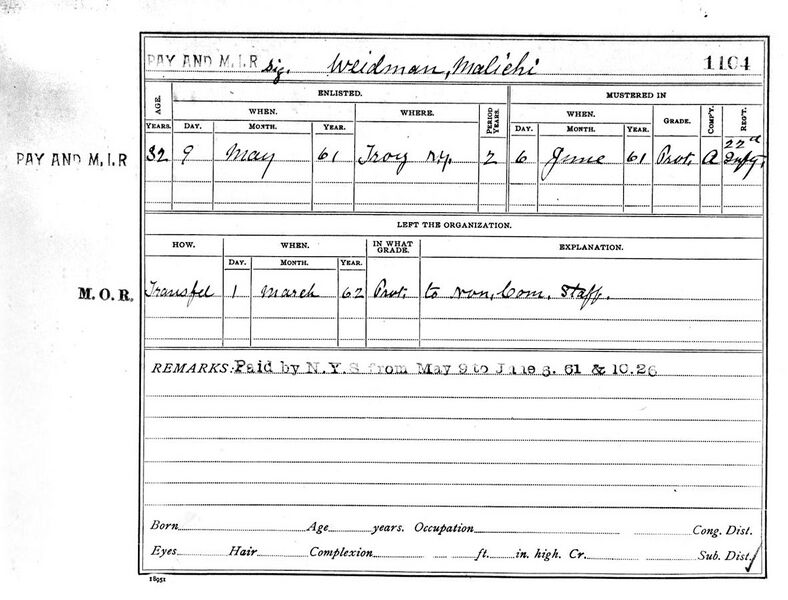 PAY AND M.I.R Sig. Weidman, Malichi 1104
ENLISTED. MUSTERED IN
AGE. WHEN. WHERE. PERIOD YEARS. WHEN. GRADE. COMP'Y. REG'T.
YEARS. DAY. MONTH. YEAR. DAY. MONTH. YEAR.
22d
PAY AND M.I.R 32 9 May 61 Troy N.Y. 2 6 June 61 Prvt. A Infy.
LEFT THE ORGANIZATION.
HOW. WHEN. IN WHAT GRADE. EXPLANATION.
DAY. MONTH. YEAR.
M.O.R. Transfd 1 March 62 Prvt. to Non. Com. Staff.
REMARKS: Paid by N.Y.S from May 9 to June 6. 61 & 10.26
Born Age years. Occupation Cong. Dist.
Eyes Hair Complexion ft. in. high. Cr. Sub. Dist.
18951